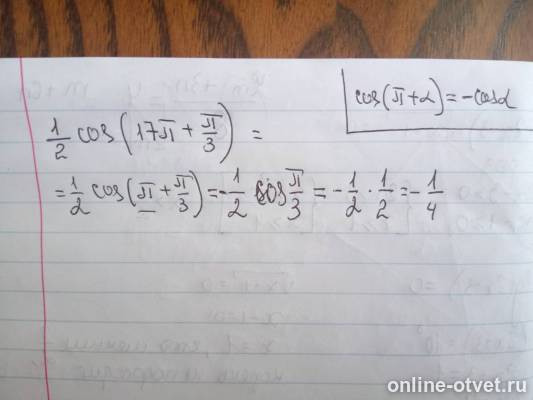 cos(π+α)=-cosα
1/2 cos(17π + π/3) =
= 1/2 cos(π + π/3) = -1/2 cos π/3 = -1/2 · 1/2 = -1/4
online-otvet.ru